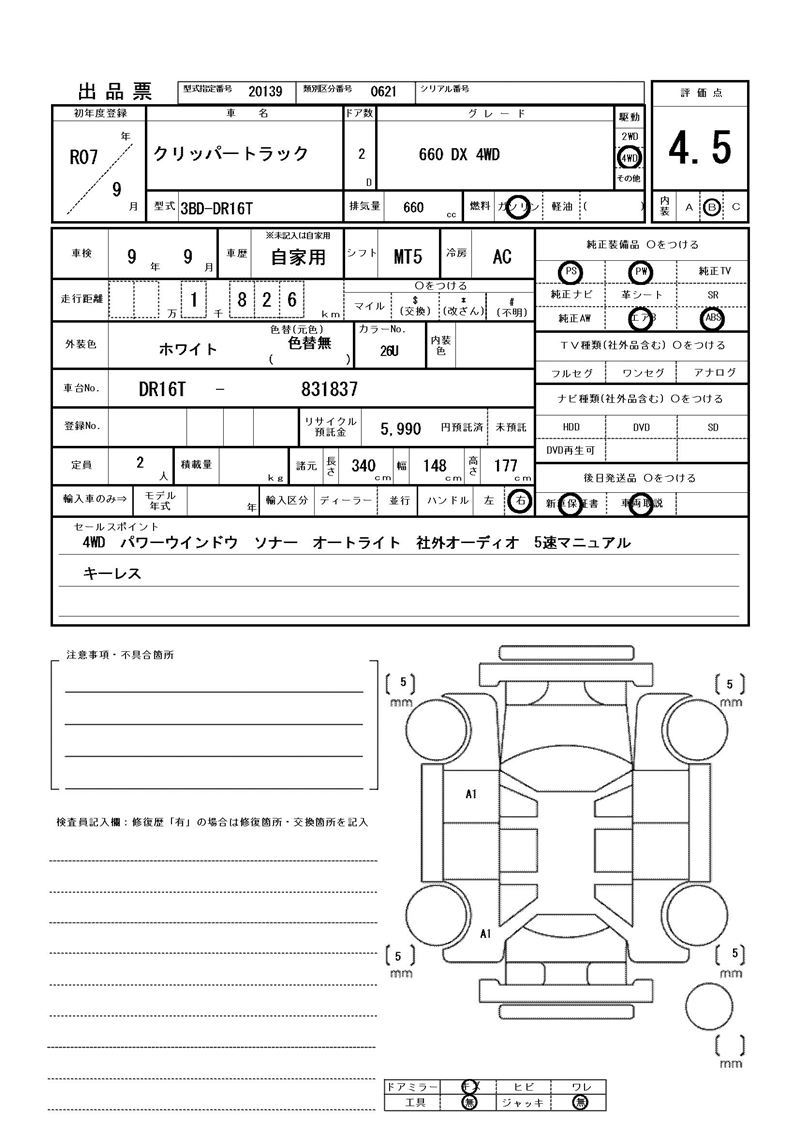 出品票
型式指定番号 20139 類別区分番号 0621 シリアル番号
評価点
初年度登録 車名 ドア数 グレード 駆動
R07 年 クリッパートラック 2 D 660 DX 4WD 2WD 4WD その他
4.5
9 月 型式 3BD-DR16T 排気量 660 cc 燃料 ガソリン 軽油 ( )
内装 A B C
車検 9 年 9 月 車歴 ※未記入は自家用 自家用 シフト MT5 冷房 AC
純正装備品 ○をつける
PS PW 純正TV
純正ナビ 革シート SR
純正AW エアB ABS
走行距離 1 万 826 千 km
○をつける
マイル $ (交換) * (改ざん) # (不明)
外装色 ホワイト 色替(元色) 色替無 ( ) カラーNo. 26U 内装色
TV種類(社外品含む) ○をつける
フルセグ ワンセグ アナログ
車台No. DR16T － 831837
ナビ種類(社外品含む) ○をつける
HDD DVD SD
DVD再生可
登録No. リサイクル預託金 5,990 円預託済 未預託
定員 2 人 積載量 kg 諸元 長さ 340 cm 幅 148 cm 高さ 177 cm
後日発送品 ○をつける
新車保証書 車両取説
輸入車のみ⇒ モデル年式 年 輸入区分 ディーラー 並行 ハンドル 左 右
セールスポイント
4WD パワーウインドウ ソナー オートライト 社外オーディオ 5速マニュアル
キーレス
注意事項・不具合箇所
5 mm
5 mm
A1
検査員記入欄：修復歴「有」の場合は修復箇所・交換箇所を記入
A1
5 mm
5 mm
mm
ドアミラー キズ ヒビ ワレ
工具 無 ジャッキ 無